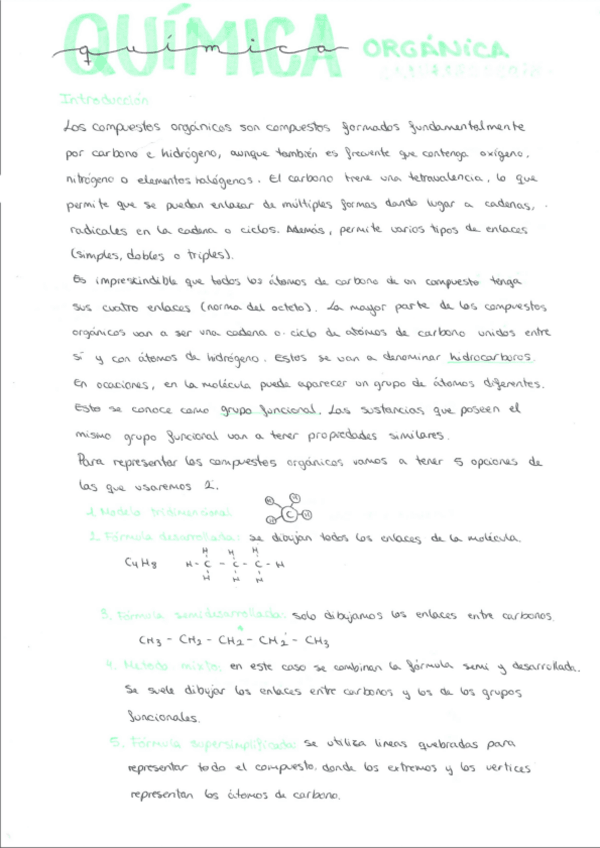 QUÍMICA
química ORGÁNICA
Introducción
Los compuestos orgánicos son compuestos formados fundamentalmente
por carbono e hidrógeno, aunque también es frecuente que contenga oxígeno,
nitrógeno o elementos halógenos. El carbono tiene una tetravalencia, lo que
permite que se puedan enlazar de múltiples formas dando lugar a cadenas,
radicales en la cadena o ciclos. Además, permite varios tipos de enlaces
(simples, dobles o triples).
Es imprescindible que todos los átomos de carbono de un compuesto tenga
sus cuatro enlaces (norma del octeto). La mayor parte de los compuestos
orgánicos van a ser una cadena o ciclo de átomos de carbono unidos entre
sí y con átomos de hidrógeno. Estos se van a denominar hidrocarburos.
En ocaciones, en la molécula puede aparecer un grupo de átomos diferentes.
Esto se conoce como grupo funcional. Las sustancias que poseen el
mismo grupo funcional van a tener propiedades similares.
Para representar los compuestos orgánicos vamos a tener 5 opciones de
las que usaremos 2.
1. Modelo tridimensional: H H H C H
2. Fórmula desarrollada: se dibujan todos los enlaces de la molécula.
H H H
C4H8 H - C - C - C - H
H H H
3. Fórmula semidesarrollada: solo dibujamos los enlaces entre carbonos.
CH3 - CH2 - CH2 - CH2 - CH3
4. Metodo mixto: en este caso se combinan la fórmula semi y desarrollada.
Se suele dibujar los enlaces entre carbonos y los de los grupos
funcionales.
5. Fórmula supersimplificada: se utiliza lineas quebradas para
representar todo el compuesto, donde los extremos y los vertices
representan los átomos de carbono.